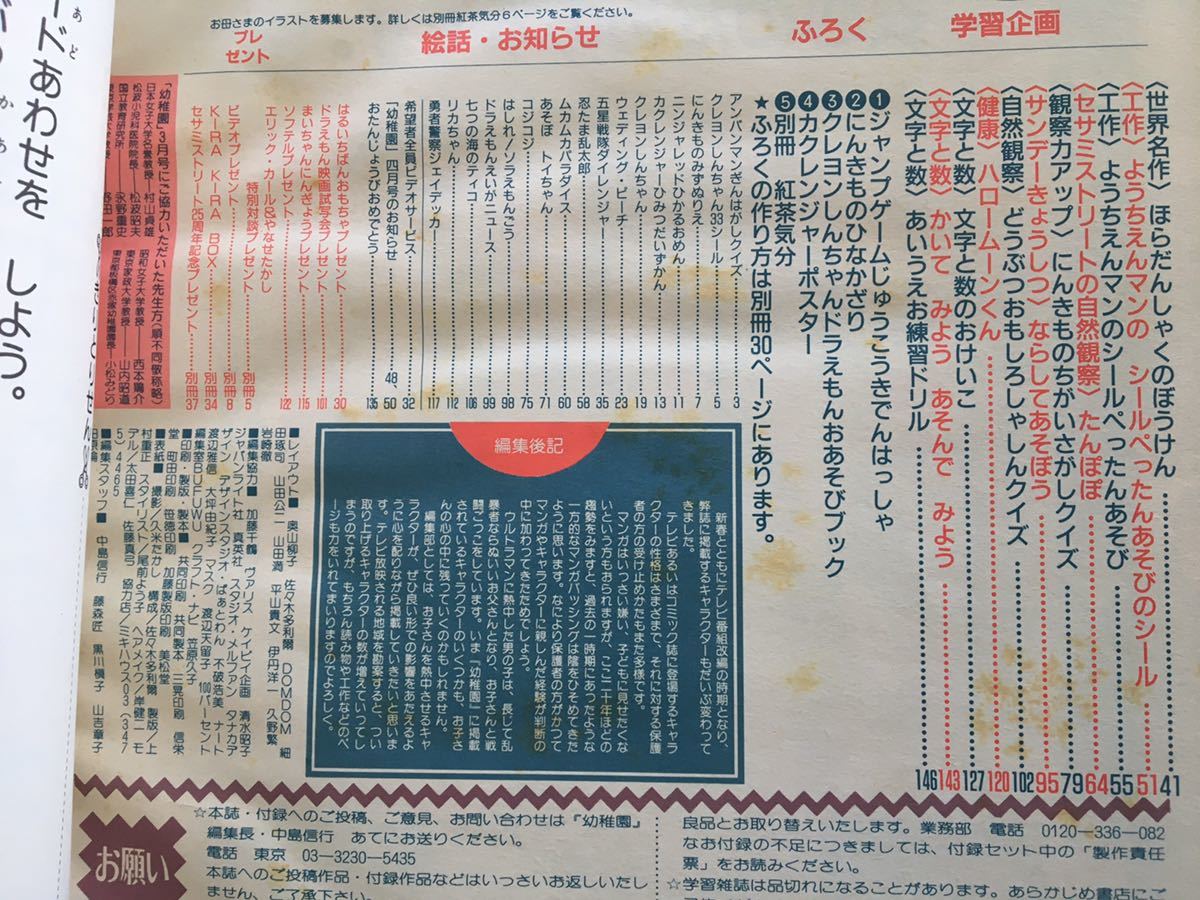 お母さまのイラストを募集します。詳しくは別冊紅茶気分6ページをご覧ください。
学習企画
〈世界名作〉ほらだんしゃくのぼうけん 41
〈工作〉ようちえんマンの シールぺったんあそびのシール 51
〈工作〉ようちえんマンのシールぺったんあそび 55
〈セサミストリートの自然観察〉たんぽぽ 64
〈観察力アップ〉にんきものちがいさがしクイズ 79
〈サンデーきょうしつ〉ならしてあそぼう 95
〈自然観察〉どうぶつおもしろしゃしんクイズ 102
〈健康〉ハロームーンくん 120
〈文字と数〉文字と数のおけいこ 127
〈文字と数〉かいて みよう あそんで みよう 143
〈文字と数〉あいうえお練習ドリル 146
ふろく
❶ジャンプゲームじゅうこうきでんはっしゃ
❷にんきものひなかざり
❸クレヨンしんちゃんドラえもんおあそびブック
❹カクレンジャーポスター
❺別冊 紅茶気分
★ふろくの作り方は別冊30ページにあります。
絵話・お知らせ
アンパンマンぎんはがしクイズ 3
クレヨンしんちゃん33シール 5
にんきものみずぬりえ 7
ニンジャレッドひかるおめん 11
カクレンジャーひみつだいずかん 13
クレヨンしんちゃん 19
ウェディング・ピーチ 23
五星戦隊ダイレンジャー 35
忍たま乱太郎 58
ムカムカパラダイス 60
あそぼ トイちゃん 71
コジコジ 75
はしれ!ソラえもんごう 98
ドラえもんえいがニュース 99
七つの海のティコ 106
リカちゃん 112
勇者警察ジェイデッカー 117
希望者全員ビデオサービス 32
「幼稚園」四月号のお知らせ 48、50
おたんじょうびおめでとう 135
プレゼント
はるいちばんおもちゃプレゼント 30
ドラえもん映画試写会プレゼント 101
まいちゃんにんぎょうプレゼント 115
ソフテルプレゼント 122
エリック・カール&やなせたかし
特別対談プレゼント 別冊5
ビデオプレゼント 別冊8
KIRA KIRA BOX 別冊34
セサミストリート25周年記念プレゼント 別冊37
「幼稚園」3月号にご協力いただいた先生方(順不同敬称略)
日本女子大学名誉教授 村山貞雄
松波小児科医院院長 松波昭夫
国立教育研究所 永野重史
昭和女子大学教授 西本鶏介
東京家政大学教授 山内昭道
東京都板橋区赤塚幼稚園園長 小松みどり
編集後記
新春とともにテレビ番組改編の時期となり、
弊誌に掲載するキャラクターもだいぶ変わって
きました。
テレビあるいはコミック誌に登場するキャラ
クターの性格はさまざまで、それに対する保護
者の方の受け止めかたもまた多様です。
マンガはいっさい嫌い、子どもに見せたくな
いという方もおられますが、ここ二十年ほどの
趨勢をみますと、過去の一時期にあったような
一方的なマンガバッシングは陰をひそめてきた
ように思います。なにより保護者の方がかつて
マンガやキャラクターに親しんだ経験が判断の
中に加わってきたためでしょう。
ウルトラマンに熱中した男の子は、長じて乱
暴者ならぬいいお父さんとなり、お子さんと戦
闘ごっこをしています。いま「幼稚園」に掲載
されているキャラクターのいくつかも、お子さ
んの心の中に残っていくのかもしれません。
編集部としては、お子さんを熱中させるキャ
ラクターが、ぜひ良い形での影響をあたえるよ
うに心を配りながら掲載していきたいと思いま
す。テレビ放映される地域を勘案すると、つい
取り上げるキャラクターの数が増えていってし
まうのですが、もちろん読み物や工作などのペ
ージも力をいれてまいりますのでよろしく。
■レイアウト■ 奥山柳子 佐々木多利爾 DOMDOM 細
田琢司 山田公二 山田満 平山貴文 伊丹洋一 久野繁
岩崎徹
■編集協力■ 加藤千鶴 ヴァリス ケイビイ企画 清水昭子
ジャパンライト社 真英社 スタジオ・メルファン タナカア
ザイン デザインスタジオ・ぱあとわん 不破浩美 ナート
渡辺雅信 大坪由紀子 マスク 渡辺天留子 100パーセント
編集室BUFUWU クラフト・ナビ 笠原久子
■印刷・製版・製本■ 共同印刷 共同製本 三晃印刷 信栄
堂 町田印刷 笹徳印刷 加藤製版印刷 美松堂
■表紙■ 撮影/久米たかし 構成/佐々木多利爾 製版/上
村重正 スタイリスト/尾前よう子 ヘアメイク/岸健二 モ
デル/太田喜仁 佐藤真弓 協力店/ミキハウス03(347
5)4465
■編集スタッフ■ 中島信行 藤森匠 黒川槙子 山吉章子
お願い
☆本誌・付録へのご投稿、ご意見、お問い合わせは『幼稚園』
編集長・中島信行 あてにお送りください。
電話 東京 03-3230-5435
本誌へのご投稿作品・付録作品などはいっさいお返しいたし
ません。ご了承下さい。
良品とお取り替えいたします。業務部 電話 0120-336-082
なお付録の不足につきましては、付録セット中の「製作責任
票」をお読みください。
☆学習雑誌は品切れになることがあります。あらかじめ書店にご
ドあわせを しよう。